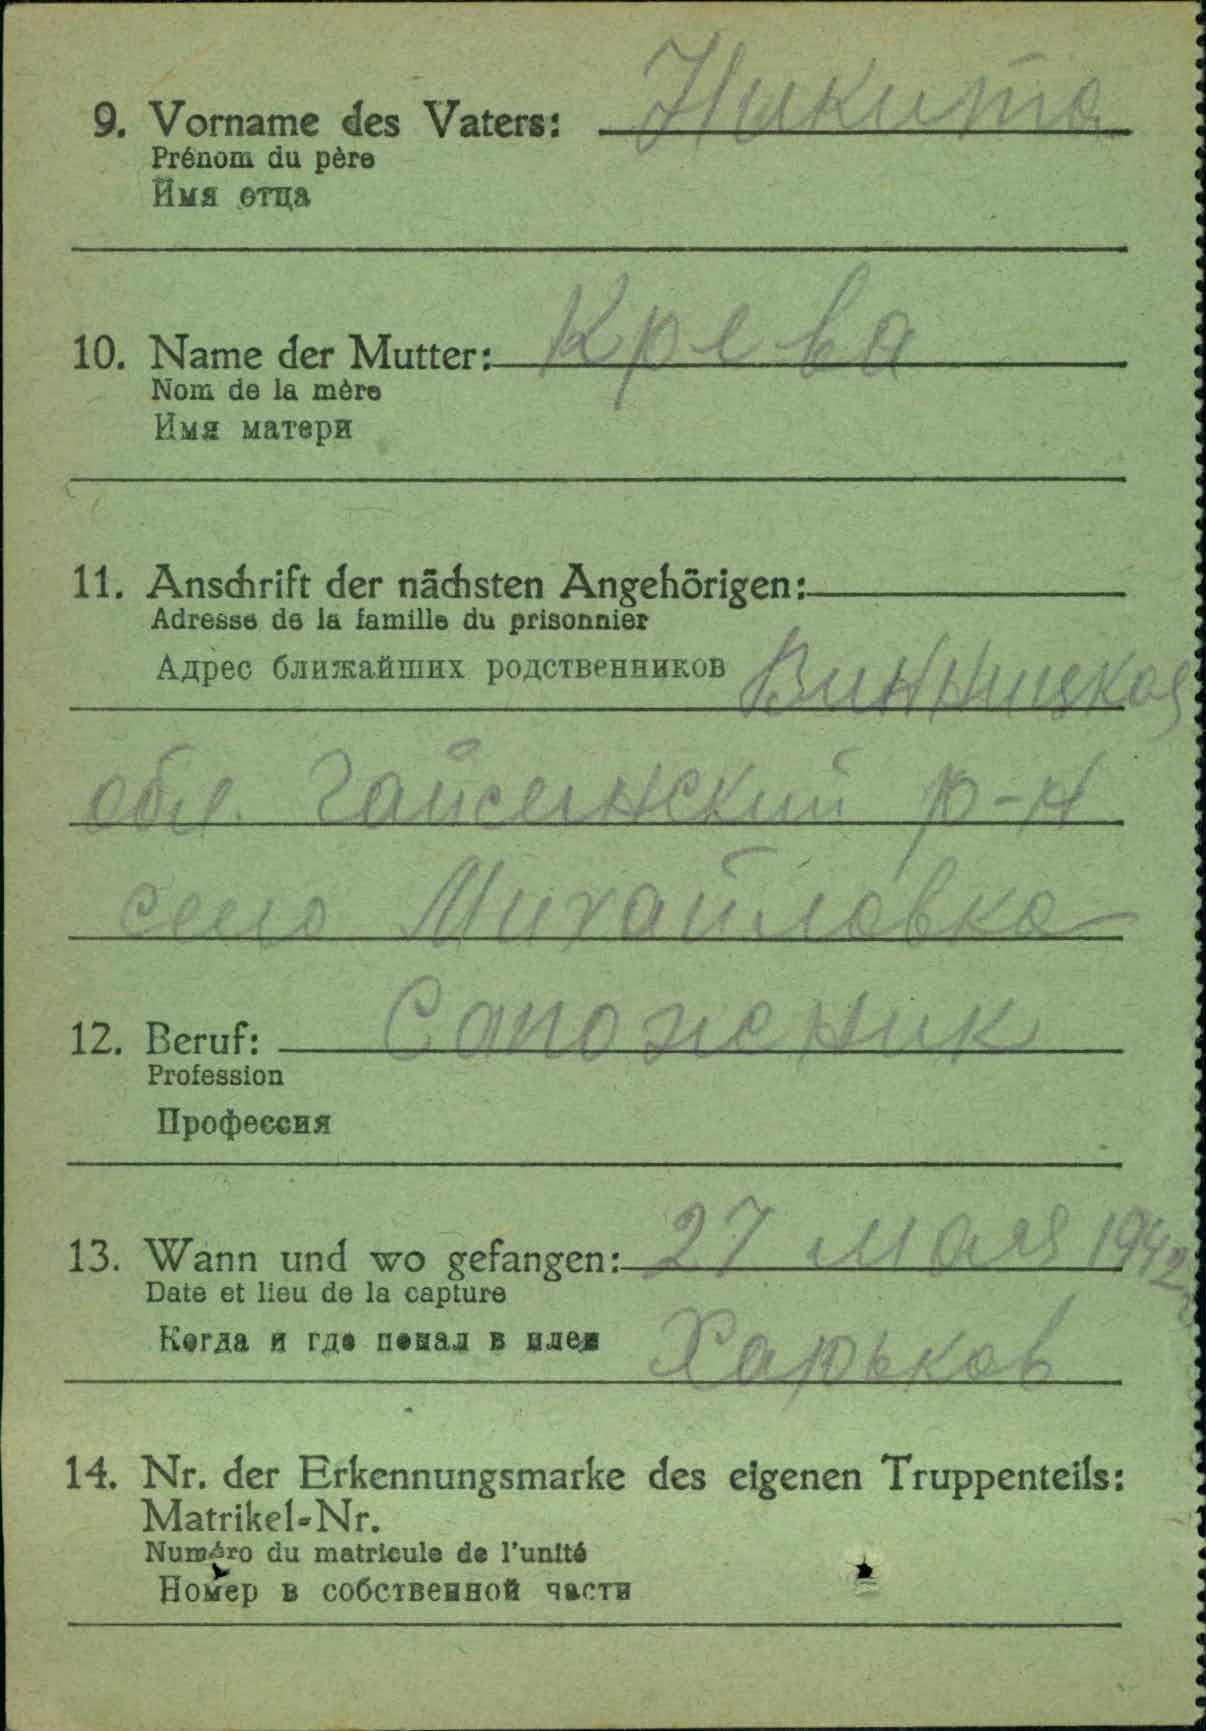 9. Vorname des Vaters: Никита
Prénom du père
Имя отца
10. Name der Mutter: Крева
Nom de la mère
Имя матери
11. Anschrift der nächsten Angehörigen:
Adresse de la famille du prisonnier
Адрес ближайших родственников Винницкая
обл. Гайсинский р-н
село Михайловка
12. Beruf: Сапожник
Profession
Профессия
13. Wann und wo gefangen: 27 мая 1942
Date et lieu de la capture
Когда и где попал в плен Харьков
14. Nr. der Erkennungsmarke des eigenen Truppenteils:
Matrikel-Nr.
Numéro du matricule de l'unité
Номер в собственной части